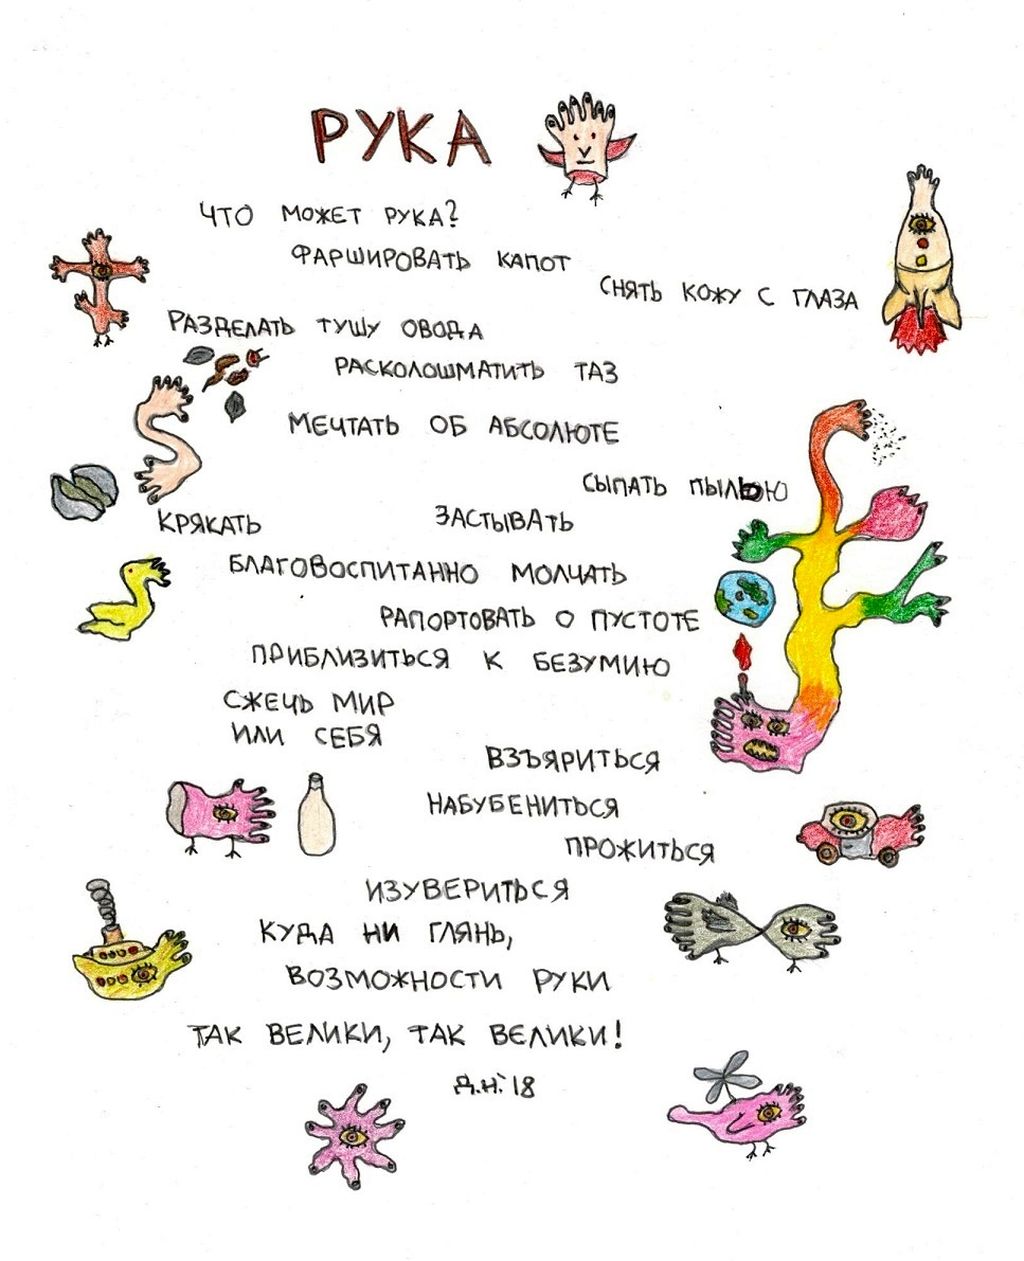 РУКА
ЧТО МОЖЕТ РУКА?
ФАРШИРОВАТЬ КАПОТ
СНЯТЬ КОЖУ С ГЛАЗА
РАЗДЕЛАТЬ ТУШУ ОВОДА
РАСКОЛОШМАТИТЬ ТАЗ
МЕЧТАТЬ ОБ АБСОЛЮТЕ
СЫПАТЬ ПЫЛЬЮ
КРЯКАТЬ ЗАСТЫВАТЬ
БЛАГОВОСПИТАННО МОЛЧАТЬ
РАПОРТОВАТЬ О ПУСТОТЕ
ПРИБЛИЗИТЬСЯ К БЕЗУМИЮ
СЖЕЧЬ МИР
ИЛИ СЕБЯ
ВЗЪЯРИТЬСЯ
НАБУБЕНИТЬСЯ
ПРОЖИТЬСЯ
ИЗУВЕРИТЬСЯ
КУДА НИ ГЛЯНЬ,
ВОЗМОЖНОСТИ РУКИ
ТАК ВЕЛИКИ, ТАК ВЕЛИКИ!
Д.Н.'18